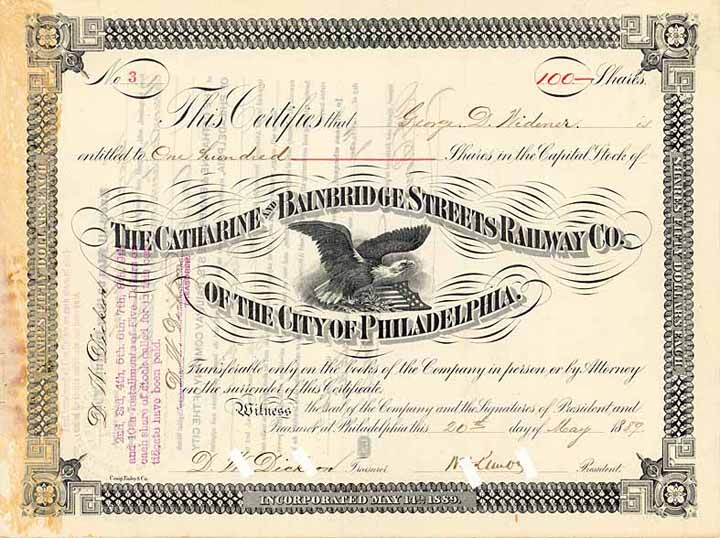 No 3
100 Shares.
This Certifies that George D. Widener is
entitled to One hundred Shares in the Capital Stock of
THE CATHARINE AND BAINBRIDGE STREETS RAILWAY CO.
OF THE CITY OF PHILADELPHIA.
Transferable only on the books of the Company in person or by Attorney
on the surrender of this Certificate.
Witness the seal of the Company and the Signatures of President and
Treasurer at Philadelphia this 20th day of May 1889
D. W. Dickson Treasurer. President.
INCORPORATED MAY 14th 1889.
SHARES FIFTY DOLLARS EACH
SHARES FIFTY DOLLARS EACH
2nd, 3rd, 4th, 5th, 6th, 7th,
and 10th Installments of Five
each share of stock called for in
tificate have been paid.
D. W. Dickson